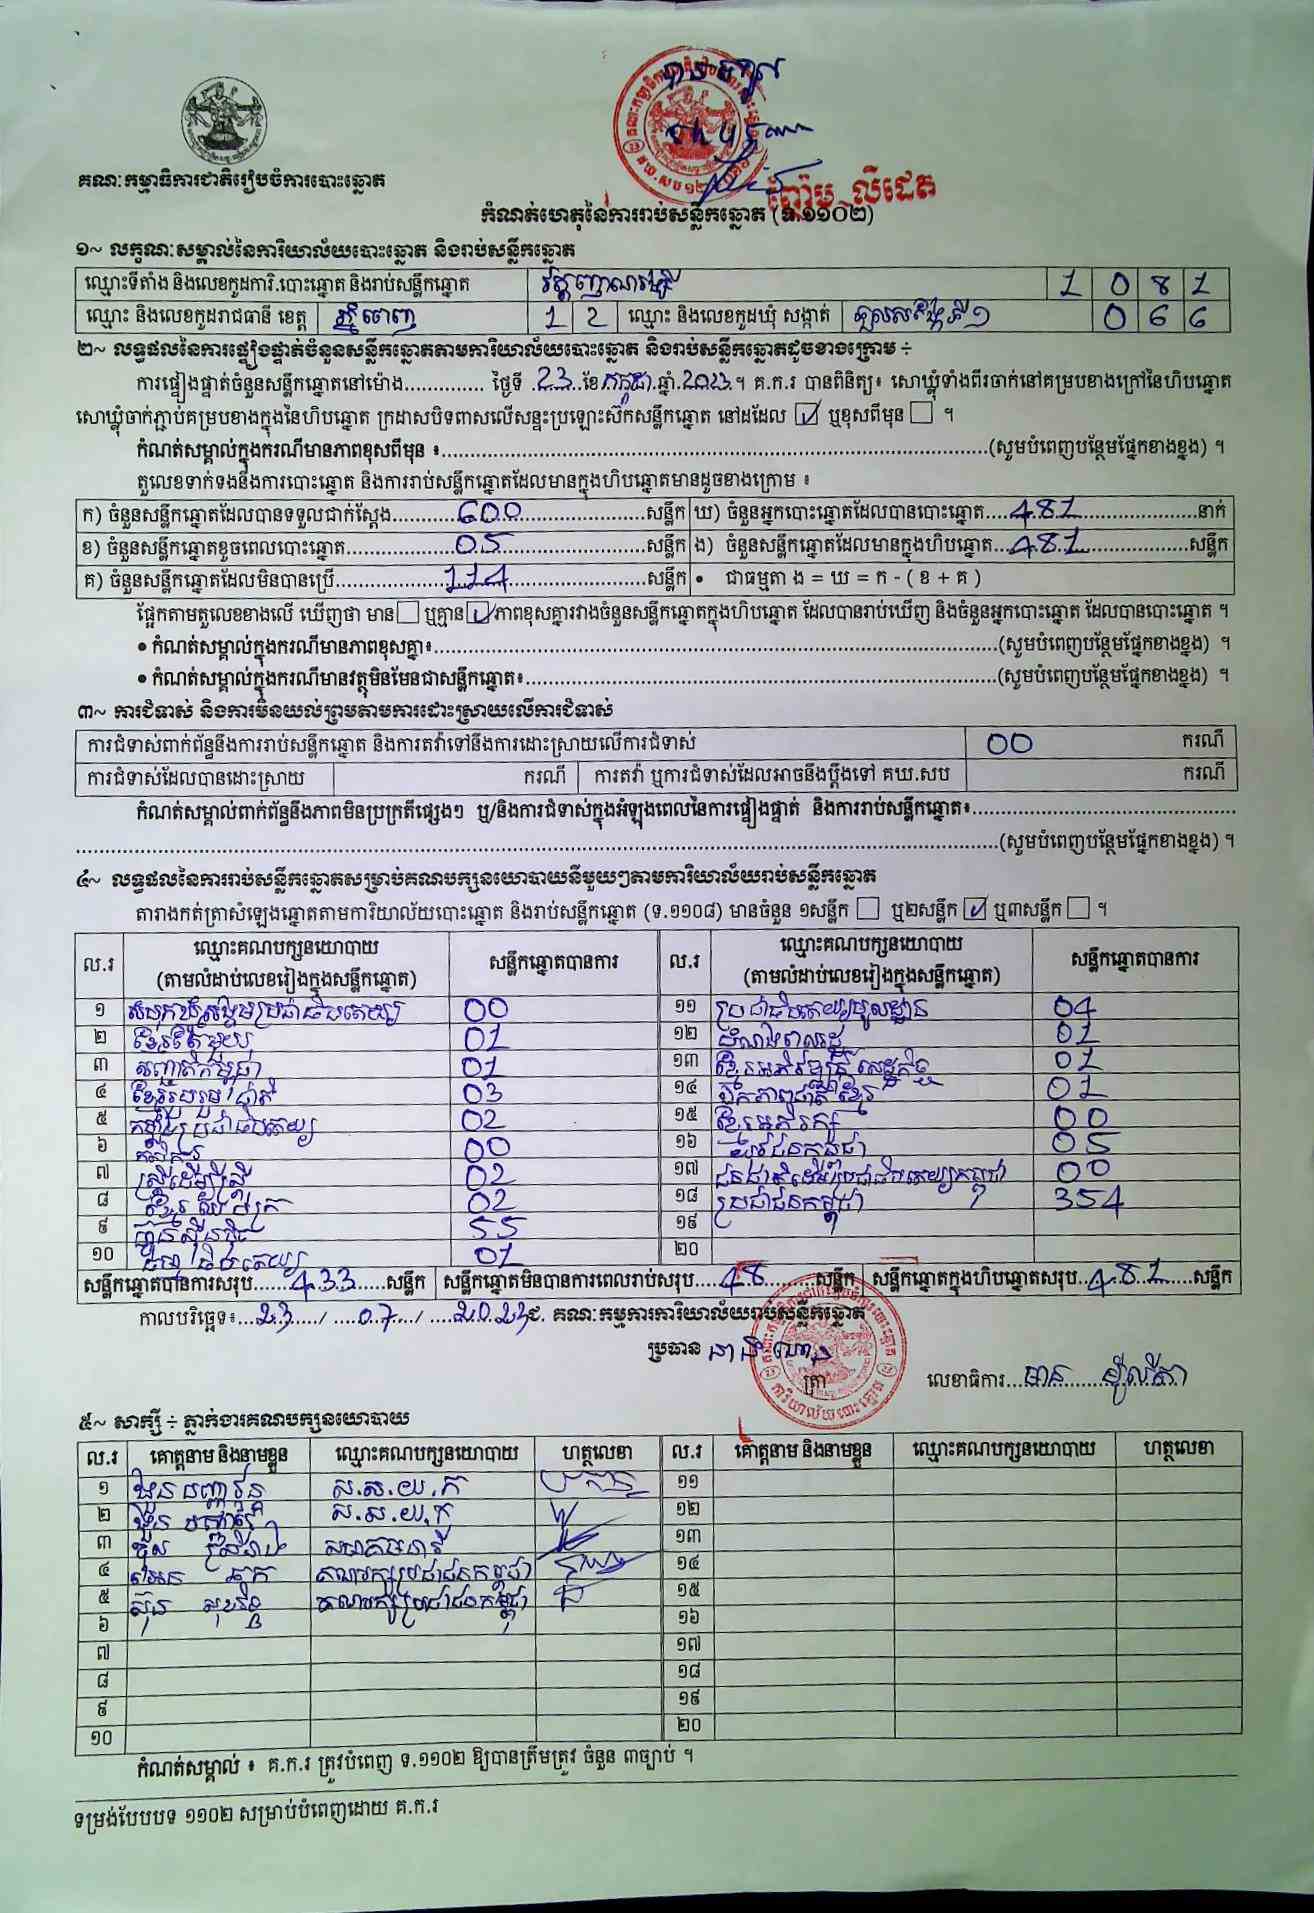 គណៈកម្មាធិការជាតិរៀបចំការបោះឆ្នោត
ញ៉ើប លីដេត
កំណត់ហេតុនៃការរាប់សន្លឹកឆ្នោត (ទ.១១០២)
១~ លក្ខណៈសម្គាល់នៃការិយាល័យបោះឆ្នោត និងរាប់សន្លឹកឆ្នោត
ឈ្មោះទីតាំង និងលេខកូដការិ.បោះឆ្នោត និងរាប់សន្លឹកឆ្នោត វត្តញាណរង្សី 1 0 8 1
ឈ្មោះ និងលេខកូដរាជធានី ខេត្ត ភ្នំពេញ 1 2 ឈ្មោះ និងលេខកូដឃុំ សង្កាត់ ទួលសង្កែទី១ 0 6 6
២~ លទ្ធផលនៃការផ្ទៀងផ្ទាត់ចំនួនសន្លឹកឆ្នោតតាមការិយាល័យបោះឆ្នោត និងរាប់សន្លឹកឆ្នោតដូចខាងក្រោម ÷
ការផ្ទៀងផ្ទាត់ចំនួនសន្លឹកឆ្នោតនៅម៉ោង.............. ថ្ងៃទី .23. ខែ កក្កដា. ឆ្នាំ.2023.។ គ.ក.រ បានពិនិត្យ៖ សោឃ្លុំទាំងពីរចាក់នៅគម្របខាងក្រៅនៃហិបឆ្នោត
សោឃ្លុំចាក់ភ្ជាប់គម្របខាងក្នុងនៃហិបឆ្នោត ក្រដាសបិទពាសលើសន្ទះប្រឡោះស៊កសន្លឹកឆ្នោត នៅដដែល ☑ ឬខុសពីមុន ☐ ។
កំណត់សម្គាល់ក្នុងករណីមានភាពខុសពីមុន ៖......(សូមបំពេញបន្ថែមផ្នែកខាងខ្នង) ។
តួលេខទាក់ទងនឹងការបោះឆ្នោត និងការរាប់សន្លឹកឆ្នោតដែលមានក្នុងហិបឆ្នោតមានដូចខាងក្រោម ៖
ក) ចំនួនសន្លឹកឆ្នោតដែលបានទទួលជាក់ស្តែង......600......សន្លឹក ឃ) ចំនួនអ្នកបោះឆ្នោតដែលបានបោះឆ្នោត......481......នាក់
ខ) ចំនួនសន្លឹកឆ្នោតខូចពេលបោះឆ្នោត......05......សន្លឹក ង) ចំនួនសន្លឹកឆ្នោតដែលមានក្នុងហិបឆ្នោត......481......សន្លឹក
គ) ចំនួនសន្លឹកឆ្នោតដែលមិនបានប្រើ......114......សន្លឹក • ជាធម្មតា ង = ឃ = ក - ( ខ + គ )
ផ្អែកតាមតួលេខខាងលើ ឃើញថា មាន ☐ ឬគ្មាន ☑ ភាពខុសគ្នារវាងចំនួនសន្លឹកឆ្នោតក្នុងហិបឆ្នោត ដែលបានរាប់ឃើញ និងចំនួនអ្នកបោះឆ្នោត ដែលបានបោះឆ្នោត ។
• កំណត់សម្គាល់ក្នុងករណីមានភាពខុសគ្នា៖......(សូមបំពេញបន្ថែមផ្នែកខាងខ្នង) ។
• កំណត់សម្គាល់ក្នុងករណីមានវត្ថុមិនមែនជាសន្លឹកឆ្នោត៖......(សូមបំពេញបន្ថែមផ្នែកខាងខ្នង) ។
៣~ ការជំទាស់ និងការមិនយល់ព្រមតាមការដោះស្រាយលើការជំទាស់
ការជំទាស់ពាក់ព័ន្ធនឹងការរាប់សន្លឹកឆ្នោត និងការតវ៉ាទៅនឹងការដោះស្រាយលើការជំទាស់ 00 ករណី
ការជំទាស់ដែលបានដោះស្រាយ ករណី ការតវ៉ា ឬការជំទាស់ដែលអាចនឹងប្តឹងទៅ គឃ.សប ករណី
កំណត់សម្គាល់ពាក់ព័ន្ធនឹងភាពមិនប្រក្រតីផ្សេងៗ ឬ/និងការជំទាស់ក្នុងអំឡុងពេលនៃការផ្ទៀងផ្ទាត់ និងការរាប់សន្លឹកឆ្នោត៖......
......(សូមបំពេញបន្ថែមផ្នែកខាងខ្នង) ។
៤~ លទ្ធផលនៃការរាប់សន្លឹកឆ្នោតសម្រាប់គណបក្សនយោបាយនីមួយៗតាមការិយាល័យរាប់សន្លឹកឆ្នោត
តារាងកត់ត្រាសំឡេងឆ្នោតតាមការិយាល័យបោះឆ្នោត និងរាប់សន្លឹកឆ្នោត (ទ.១១០៨) មានចំនួន ១សន្លឹក ☐ ឬ២សន្លឹក ☑ ឬ៣សន្លឹក ☐ ។
ល.រ ឈ្មោះគណបក្សនយោបាយ (តាមលំដាប់លេខរៀងក្នុងសន្លឹកឆ្នោត) សន្លឹកឆ្នោតបានការ ល.រ ឈ្មោះគណបក្សនយោបាយ (តាមលំដាប់លេខរៀងក្នុងសន្លឹកឆ្នោត) សន្លឹកឆ្នោតបានការ
១ សំបុកឃ្មុំសង្គមប្រជាធិបតេយ្យ 00 ១១ ប្រជាធិបតេយ្យមូលដ្ឋាន 04
២ ខ្មែរតែមួយ 01 ១២ ដំណឹងពលរដ្ឋ 01
៣ សញ្ជាតិកម្ពុជា 01 ១៣ ខ្មែរអភិវឌ្ឍន៍សេដ្ឋកិច្ច 01
៤ ខ្មែររួបរួមជាតិ 03 ១៤ ឯកភាពជាតិខ្មែរ 01
៥ កម្លាំងប្រជាធិបតេយ្យ 02 ១៥ ខ្មែរអភិរក្ស 00
៦ កសិករ 00 ១៦ យុវជនកម្ពុជា 05
៧ ស្ត្រីដើម្បីស្ត្រី 02 ១៧ ជនជាតិដើមប្រជាធិបតេយ្យកម្ពុជា 00
៨ ខ្មែរឈប់ក្រ 02 ១៨ ប្រជាជនកម្ពុជា 354
៩ ហ្វ៊ុនស៊ិនប៉ិច 55 ១៩
១០ ធម្មាធិបតេយ្យ 01 ២០
សន្លឹកឆ្នោតបានការសរុប......433......សន្លឹក សន្លឹកឆ្នោតមិនបានការពេលរាប់សរុប......48......សន្លឹក សន្លឹកឆ្នោតក្នុងហិបឆ្នោតសរុប......481......សន្លឹក
កាលបរិច្ឆេទ៖...23..../ ....07..../ ....2023 ជ. គណៈកម្មការការិយាល័យរាប់សន្លឹកឆ្នោត
ប្រធាន
ត្រា លេខាធិការ...
៥~ សាក្សី ÷ ភ្នាក់ងារគណបក្សនយោបាយ
ល.រ គោត្តនាម និងនាមខ្លួន ឈ្មោះគណបក្សនយោបាយ ហត្ថលេខា ល.រ គោត្តនាម និងនាមខ្លួន ឈ្មោះគណបក្សនយោបាយ ហត្ថលេខា
១ ស.ស.យ.ក ១១
២ ស.ស.យ.ក ១២
៣ សមាគមនារី ១៣
៤ គណបក្សប្រជាជនកម្ពុជា ១៤
៥ គណបក្សប្រជាជនកម្ពុជា ១៥
៦ ១៦
៧ ១៧
៨ ១៨
៩ ១៩
១០ ២០
កំណត់សម្គាល់ ៖ គ.ក.រ ត្រូវបំពេញ ទ.១១០២ ឱ្យបានត្រឹមត្រូវ ចំនួន ៣ច្បាប់ ។
ទម្រង់បែបបទ ១១០២ សម្រាប់បំពេញដោយ គ.ក.រ